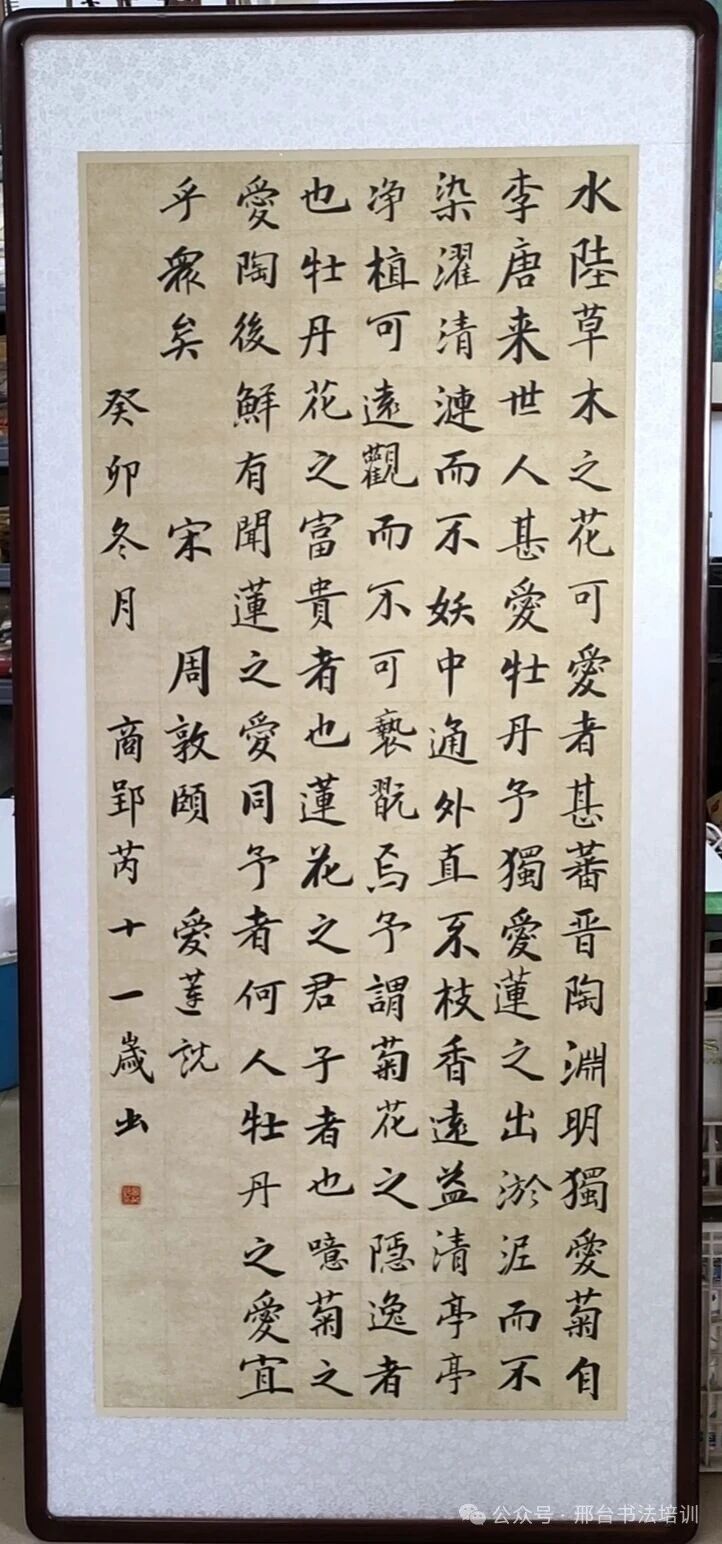 水陸草木之花可愛者甚蕃晋陶淵明獨愛菊自
李唐来世人甚愛牡丹予獨愛蓮之出淤泥而不
染濯清漣而不妖中通外直不枝香遠益清亭亭
净植可遠觀而不可褻翫焉予謂菊花之隱逸者
也牡丹花之富貴者也蓮花之君子者也噫菊之
愛陶後鮮有聞蓮之愛同予者何人牡丹之愛宜
乎衆矣 宋 周敦頤 愛蓮説
癸卯冬月 商郢芮十一歲书
公众号·邢台书法培训